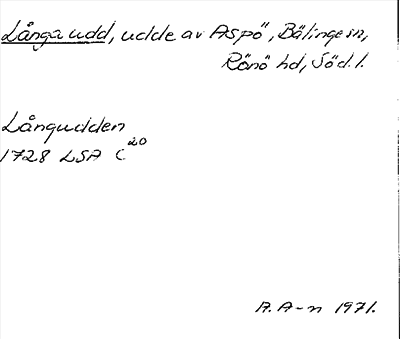 Långa udd, udde av Aspö, Bälinge sn,
Rönö hd, Södl.
Långudden
1728 LSA C 20
A. A-n 1971.